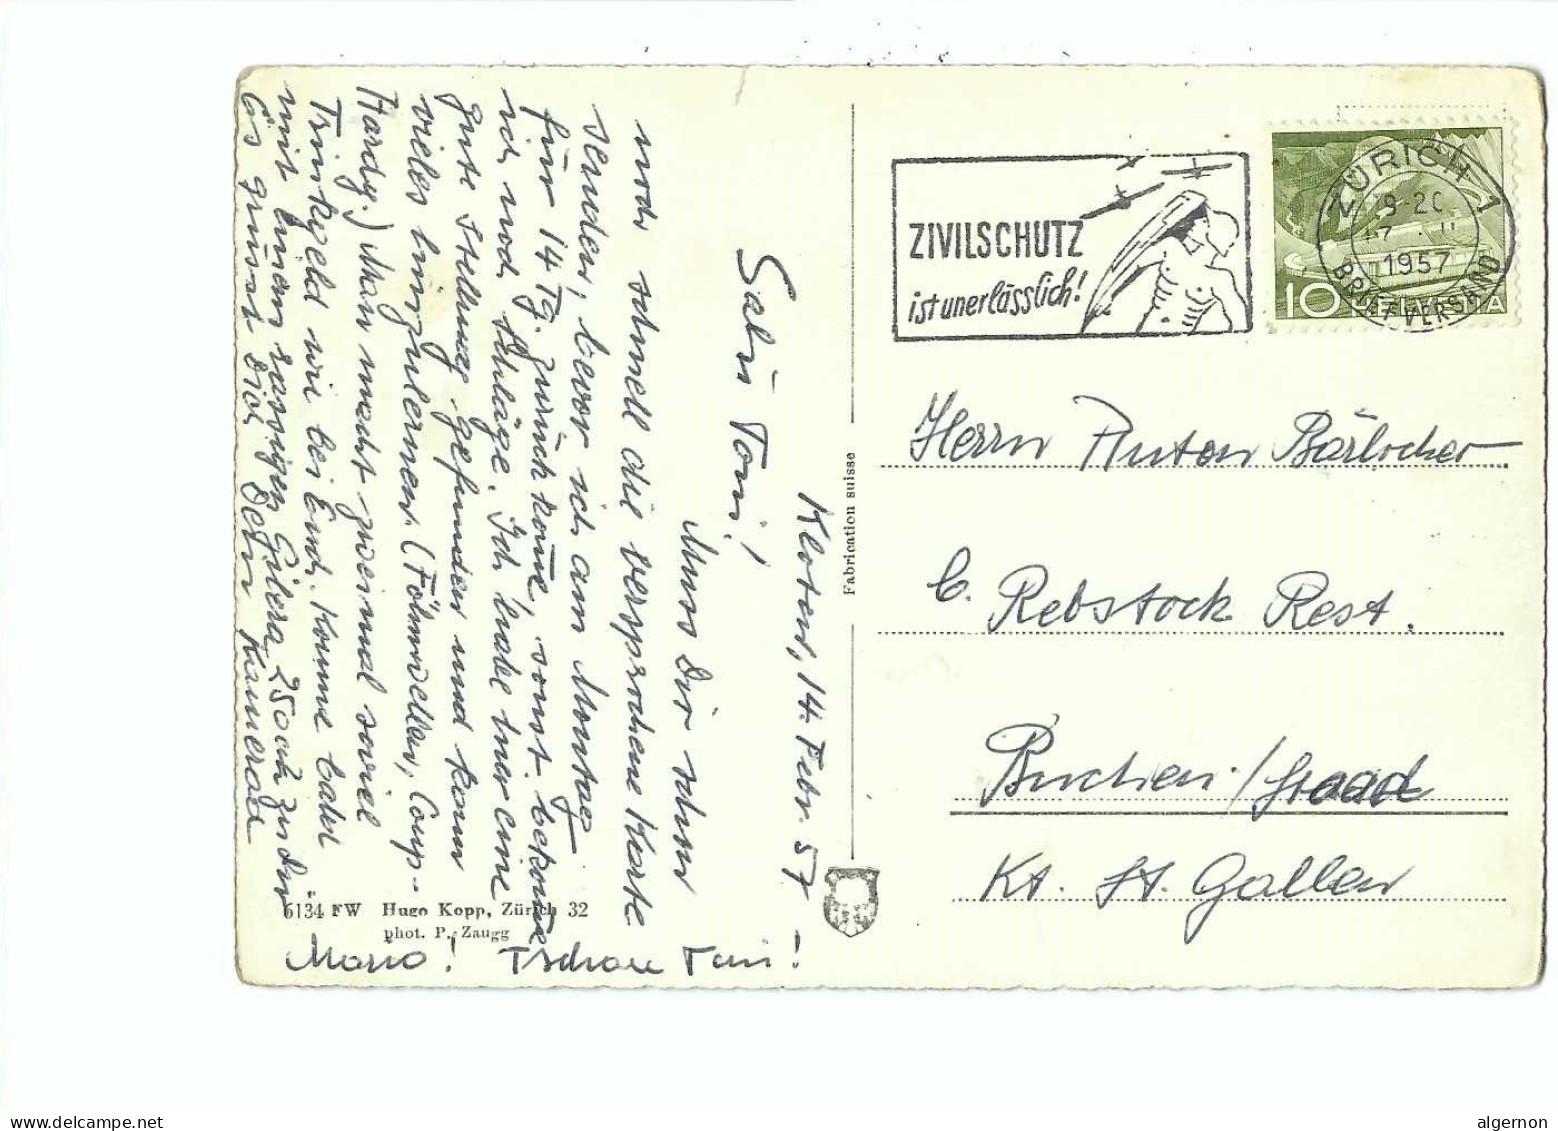 Kloten, 14. Febr. 57
Salü Toni!
Muss Dir schon
noch schnell die versprochene Karte
senden, bevor ich am Montag
für 14 Tg. zurück komme, sonst bekomme
ich noch Schläge. Ich habe hier eine
gute Stellung gefunden und kann
vieles hinzulernen. (Föhnwellen, Coup-
Hardy.) Man macht zweimal soviel
Trinkgeld wie bei Euch. Komme bald
mit einem rassigen Gilera 250 zu dir
Es grüsst Dich Dein Kamerad
Mario! Tschau Toni!
6134 FW Hugo Kopp, Zürich 32
phot. P. Zaugg
Fabrication suisse
ZIVILSCHUTZ
ist unerlässlich!
ZÜRICH 1
1957
BRIEFVERSAND
10 HELVETIA
Herrn Anton Bärlocher
c. Rebstock Rest.
Buchen / Staad
Kt. St. Gallen
delcampe.net
algernon